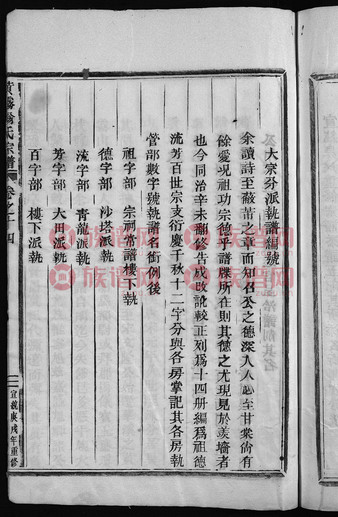 大宗分派執譜編號
余讀詩至蔽芾之章而知召公之德深入人心至甘棠尚有
餘愛况祖功宗德乎譜牒所在則其德之尤現見於羹墻者
也今同治辛未翻修告成改訛較正列為十四册編為祖德
流芳百世宗支衍慶千秋十二字分與各房掌記其各房執
管部數字號執譜名銜例後
祖字部 宗祠常譜樓下執
德字部 沙塔派執
流字部 青龍派執
芳字部 大田派執
百字部 樓下派執
氏宗譜
卷之
四
宣統庚戌年重修
族譜网